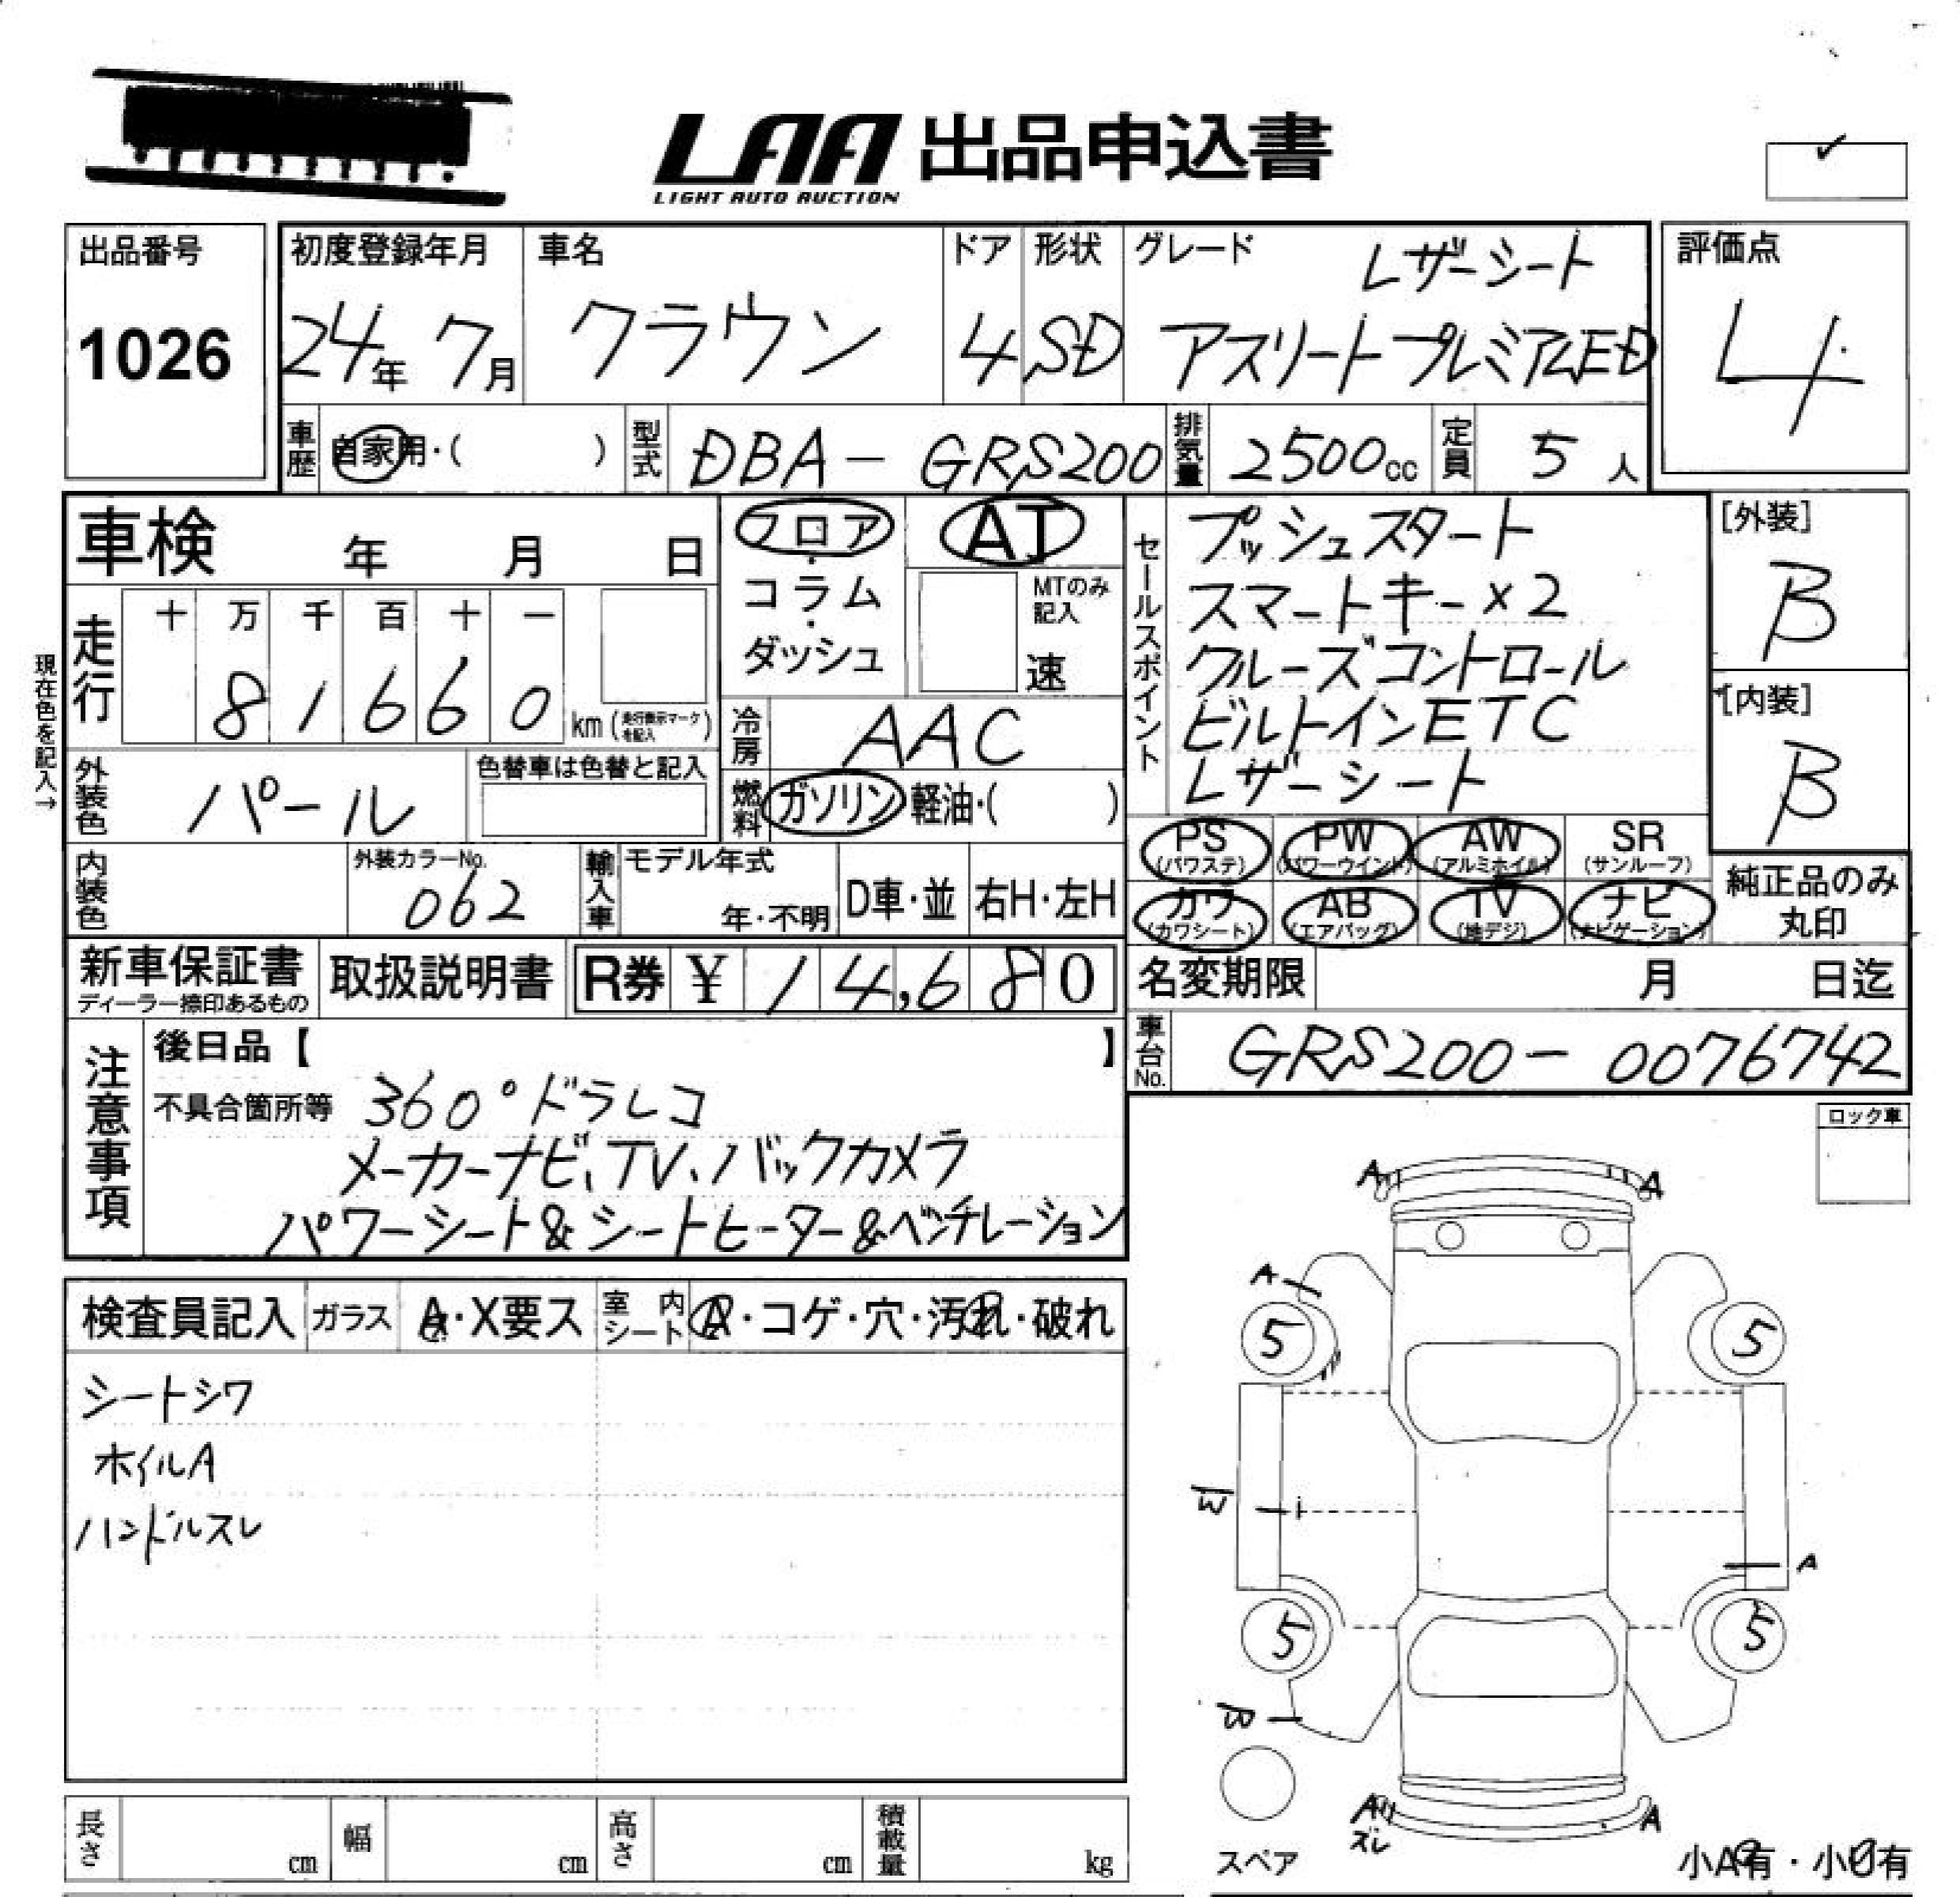 LAA 出品申込書
LIGHT AUTO AUCTION
出品番号
1026
初度登録年月
24年 7月
車名
クラウン
ドア
4
形状
SD
グレード
レザーシート
アスリートプレミアムED
評価点
4
車歴 自家用・( )
型式 DBA-GRS200
排気量 2500cc
定員 5人
車検 年 月 日
フロア・コラム・ダッシュ
AT
MTのみ記入
速
走行
十 万 千 百 十 一
8 1 6 6 0 km (走行表示マークを記入)
現在色を記入→
冷房 AAC
外装色 パール
色替車は色替と記入
燃料 ガソリン 軽油・( )
内装色
外装カラーNo.
062
輸入車
モデル年式
年・不明
D車・並
右H・左H
セールスポイント
プッシュスタート
スマートキー×2
クルーズコントロール
ビルトインETC
レザーシート
[外装]
B
[内装]
B
PS (パワステ)
PW (パワーウインド)
AW (アルミホイル)
SR (サンルーフ)
カワ (カワシート)
AB (エアバッグ)
TV (地デジ)
ナビ (ナビゲーション)
純正品のみ丸印
新車保証書
ディーラー捺印あるもの
取扱説明書
R券 ¥ 14,680
名変期限 月 日迄
車台No. GRS200-0076742
注意事項
後日品【 】
不具合箇所等 360°ドラレコ
メーカーナビ、TV、バックカメラ
パワーシート&シートヒーター&ベンチレーション
ロック車
検査員記入
ガラス A・X要ス
室内シート ・コゲ・穴・汚れ・破れ
シートシワ
ホイルA
ハンドルスレ
A A
A
5 5
W
A
5 5
A
ズレ
A
スペア
小A有・小U有
長さ cm
幅 cm
高さ cm
積載量 kg